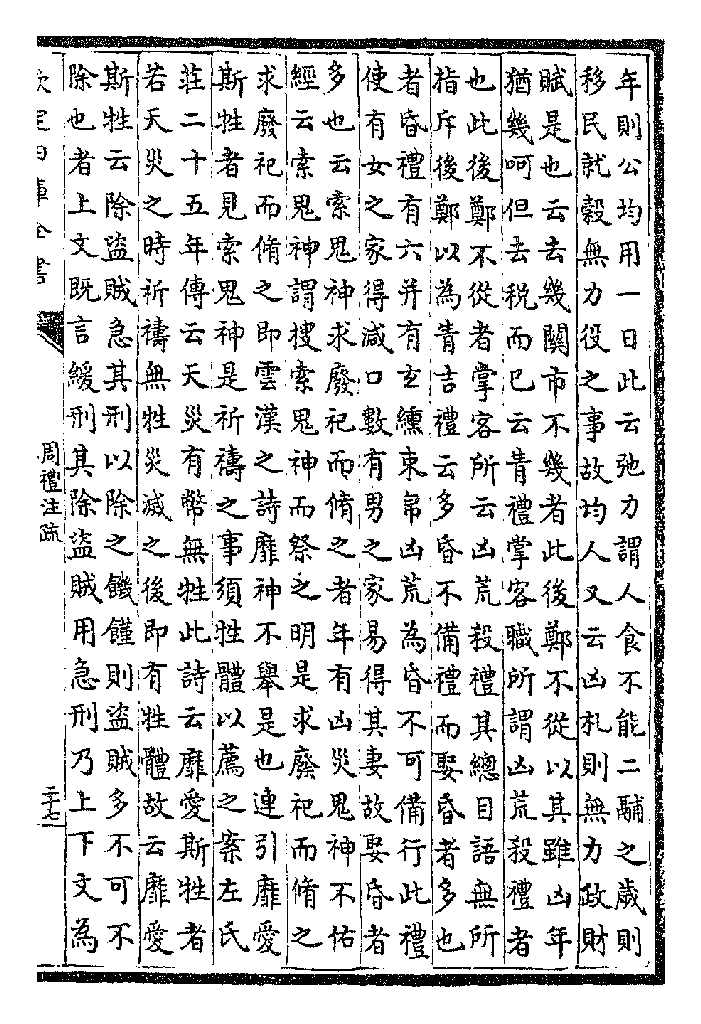 年則公均用一日此云弛力謂人食不能二鬴之歲則
移民就穀無力役之事故均人又云凶札則無力政財
賦是也云去幾關市不幾者此後鄭不從以其雖凶年
猶幾呵但去税而已云眚禮掌客職所謂凶荒殺禮者
也此後鄭不從者掌客所云凶荒殺禮其總目語無所
指斥後鄭以為眚吉禮云多昏不備禮而娶昏者多也
者昏禮有六并有玄纁束帛凶荒為昏不可備行此禮
使有女之家得減口數有男之家易得其妻故娶昏者
多也云索鬼神求廢祀而脩之者年有凶災鬼神不佑
經云索鬼神謂搜索鬼神而祭之明是求廢祀而脩之
求廢祀而脩之即雲漢之詩靡神不舉是也連引靡愛
斯牲者見索鬼神是祈禱之事須牲體以薦之案左氏
莊二十五年傳云天災有幣無牲此詩云靡愛斯牲者
若天災之時祈禱無牲災滅之後即有牲體故云靡愛
斯牲云除盜賊急其刑以除之饑饉則盜賊多不可不
除也者上文既言緩刑其除盜賊用急刑乃上下文為
欽定四庫全書
周禮注疏
二十七